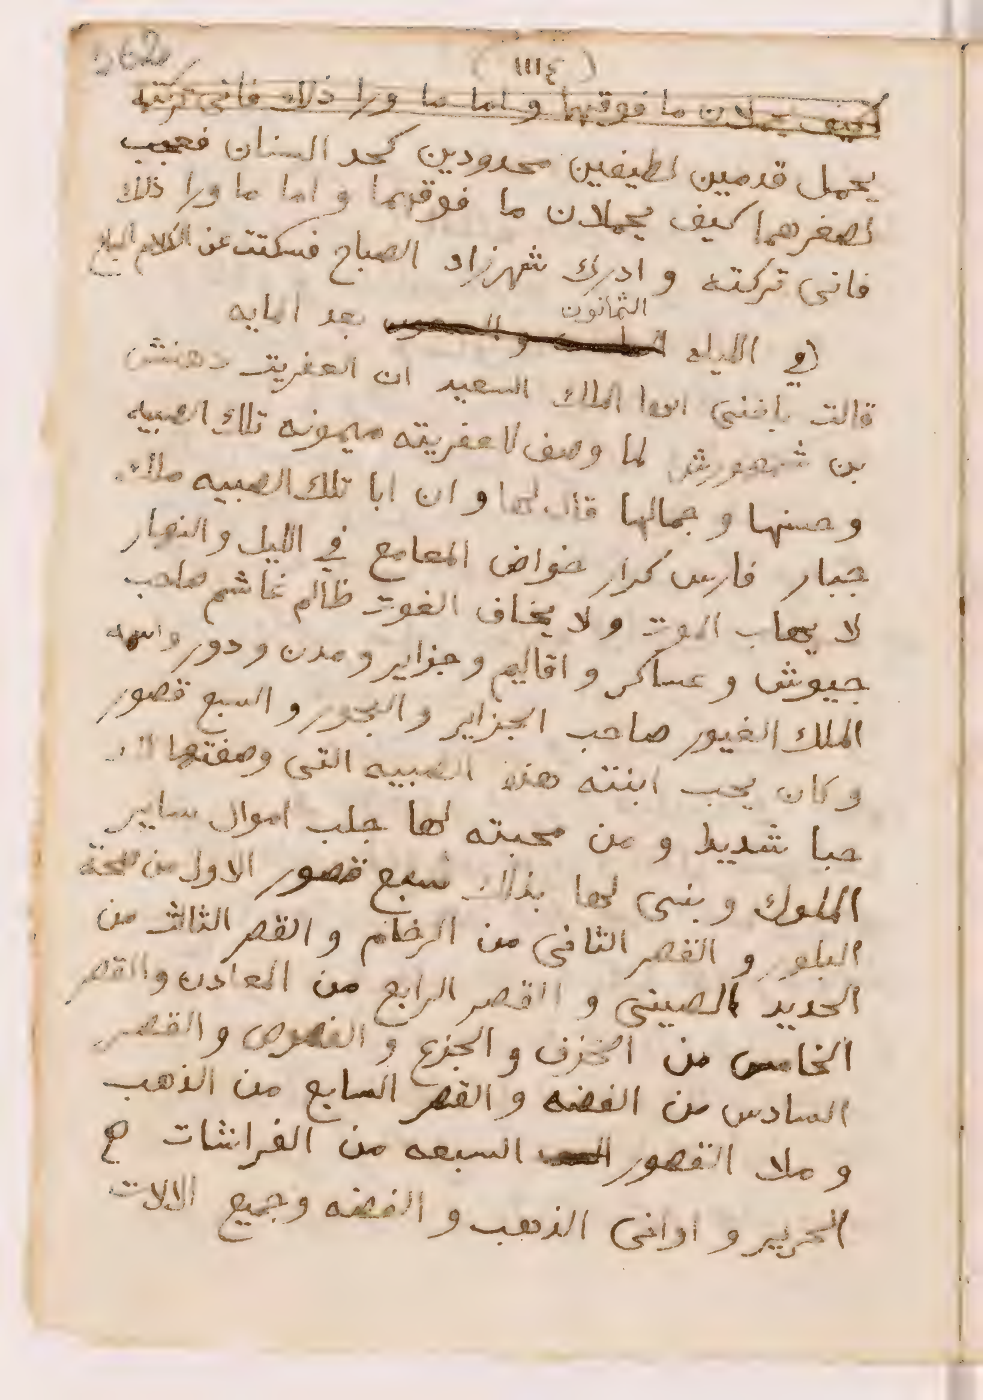 (١١١٤)
كيف يحملان ما فوقهما و اما ما ورا ذلك فاني تركته
يحمل قدمين لطيفين محدودين كحد السنان فعجبت
لصغرهما كيف يحملان ما فوقهما و اما ما ورا ذلك
فاني تركته و ادرك شهرزاد الصباح فسكتت عن الكلام المباح
الثمانون
في الليله بعد المايه
قالت بلغني ايها الملك السعيد ان العفريت دهنش
بن شمهورش لما وصف لاعفريته ميمونه تلك الصبيه
و حسنها و جمالها قال لها و ان ابا تلك الصبيه ملك
جبار فارس كرار خواض المعامع في الليل و النهار
لا يهاب الموت و لا يخاف الفوت ظالم غاشم صاحب
جيوش و عساكر و اقاليم و جزاير و مدن و دور واسمه
الملك الغيور صاحب الجزاير و البحور و السبع قصور
و كان يحب ابنته هذه الصبيه التي وصفتها لك
حبا شديدا و من محبته لها جلب اموال ساير
الملوك و بنى لها بذلك سبع قصور الاول من
البلور و القصر الثاني من الرخام و القصر الثالث من
الحديد الصيني و القصر الرابع من المعادن والقصر
الخامس من الخزف و الجزع و الفصوص و القصر
السادس من الفضه و القصر السابع من الذهب
و ملا القصور السبعه من الفراشات
الحرير و اواني الذهب و الفضه وجميع الالات